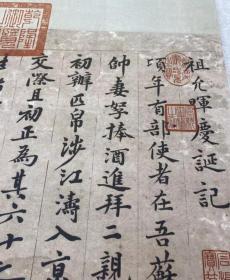 祖允暉慶誕記
頃年有部使者在吾蘇
帥妻孥捧酒進拜二親
初辦匹帛涉江濤入京
交際且初正為其六十之